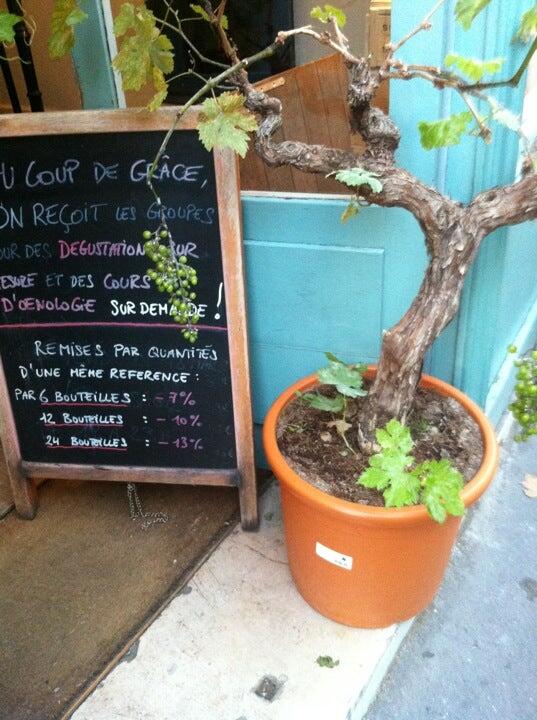 U COUP DE GRÂCE,
ON REÇOIT LES GROUPES
OUR DES DEGUSTATION SUR
ESURE ET DES COURS
D'OENOLOGIE SUR DEMANDE !
REMISES PAR QUANTITÉS
D'UNE MÊME REFERENCE :
PAR 6 BOUTEILLES : - 7%
12 BOUTEILLES : - 10%
24 BOUTEILLES : - 13%